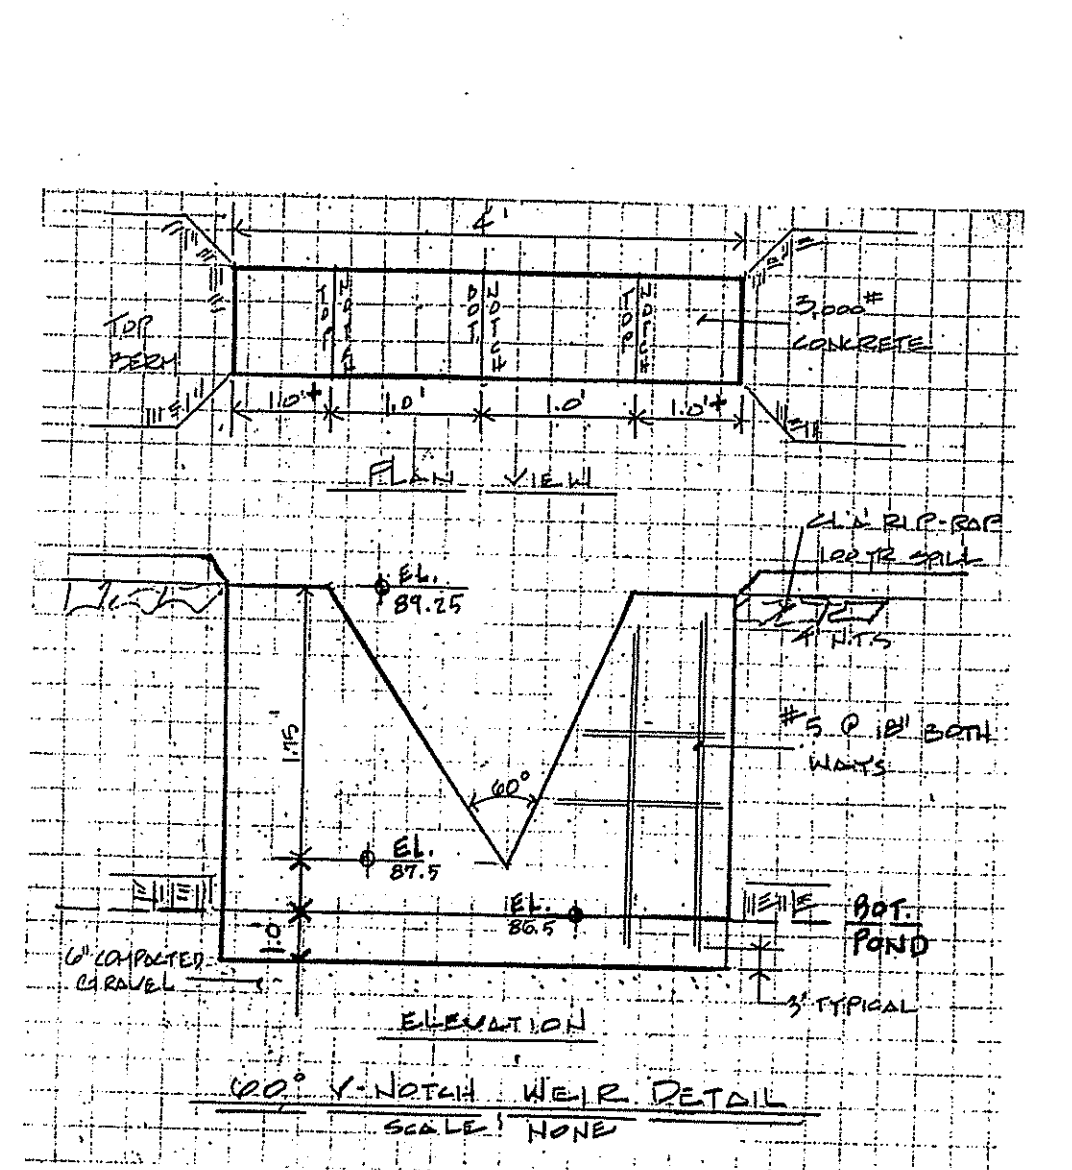 4'
TOP NOTCH
BOT. NOTCH
TOP NOTCH
TOP
BERM
3,000#
CONCRETE
1.0'+
1.0'
1.0'
1.0'+
PLAN VIEW
CL 'A' RIP-RAP
100 YR SPILL
EL.
89.25
N.T.S
1.75'
60°
#5 @ 18" BOTH
WAYS
EL.
87.5
EL.
86.5
BOT.
POND
1.0'
6" COMPACTED
GRAVEL
3" TYPICAL
ELEVATION
60° V-NOTCH WEIR DETAIL
SCALE: NONE